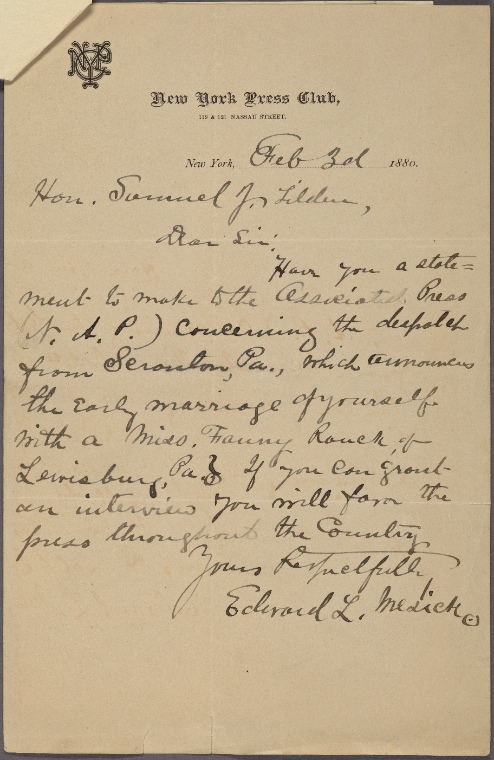 NYPC
New York Press Club,
119 & 121 NASSAU STREET.
New York, Feb 3d 1880.
Hon. Samuel J. Tilden,
Dear Sir:
Have you a state=
ment to make to the Associated Press
(N. A. P.) concerning the despatch
from Scranton, Pa., which announces
the early marriage of yourself
with a Miss. Fanny Rauck, of
Lewisburg, Pa.? If you can grant
an interview you will favor the
press throughout the Country
Yours Respectfully,
Edward L. Medick